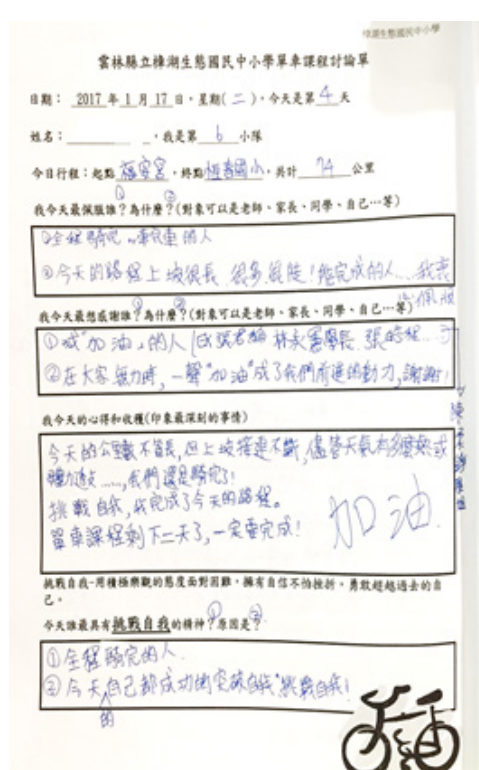 樟湖生態國民中小學
雲林縣立樟湖生態國民中小學單車課程討論單
日期： 2017 年 1 月 17 日，星期(二)，今天是第 4 天
姓名： ，我是第 6 小隊
今日行程：起點 福安宮，終點 恆春國小，共計 74 公里
我今天最佩服誰？為什麼？(對象可以是老師、家長、同學、自己…等)
① ②
①全程騎完 的人
②今天的路程上坡很長，很多很陡！能完成的人……我表
示佩服
我今天最想感謝誰？為什麼？(對象可以是老師、家長、同學、自己…等)
① ②
①喊"加油"的人
②在大家無力時，一聲"加油"成了我們前進的動力，謝謝！
我今天的心得和收穫(印象最深刻的事情)
今天的公里數不算長，但上坡接連不斷，儘管天氣有多麼熱或
……，我們還是騎完了！
挑戰自我，我完成了今天的路程。
單車課程剩下二天了，一定要完成！
加油
挑戰自我-用積極樂觀的態度面對困難，擁有自信不怕挫折，勇敢超越過去的自
己。
今天誰最具有挑戰自我的精神？原因是？
① ②
①全程騎完的人
②今天的自己都成功的突破自我"挑戰自我！